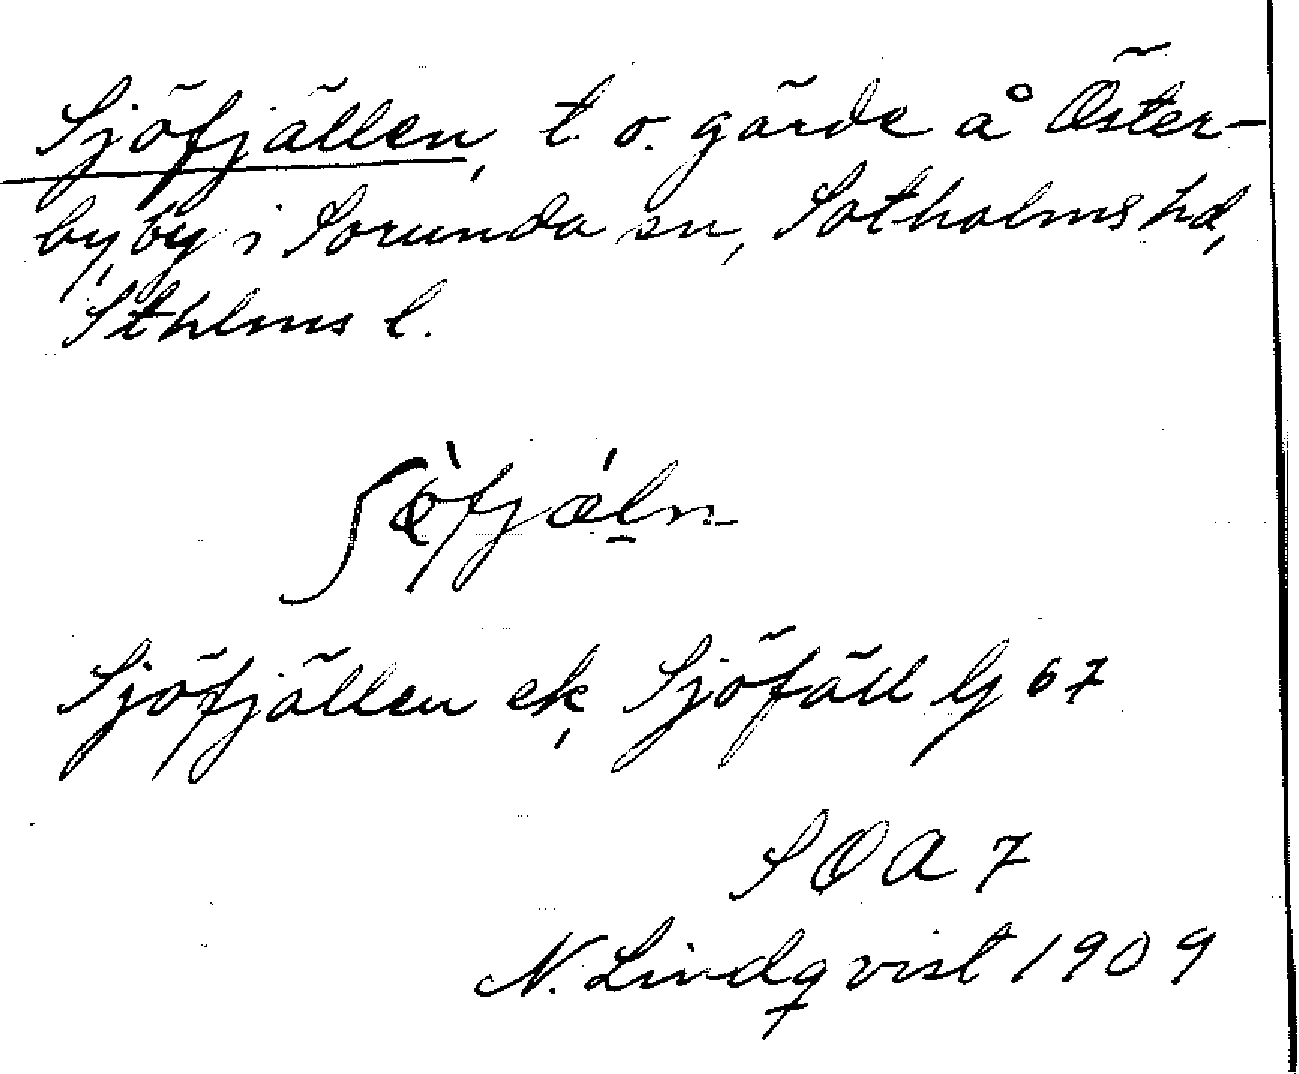 Sjöfjällen, t. o. gärde å Öster-
by, by i Sorunda sn, Sotholms hd,
Sthlms l.
Sjöfjällen ek, Sjöfäll Lj 67
SOA 7
N. Lindqvist 1909